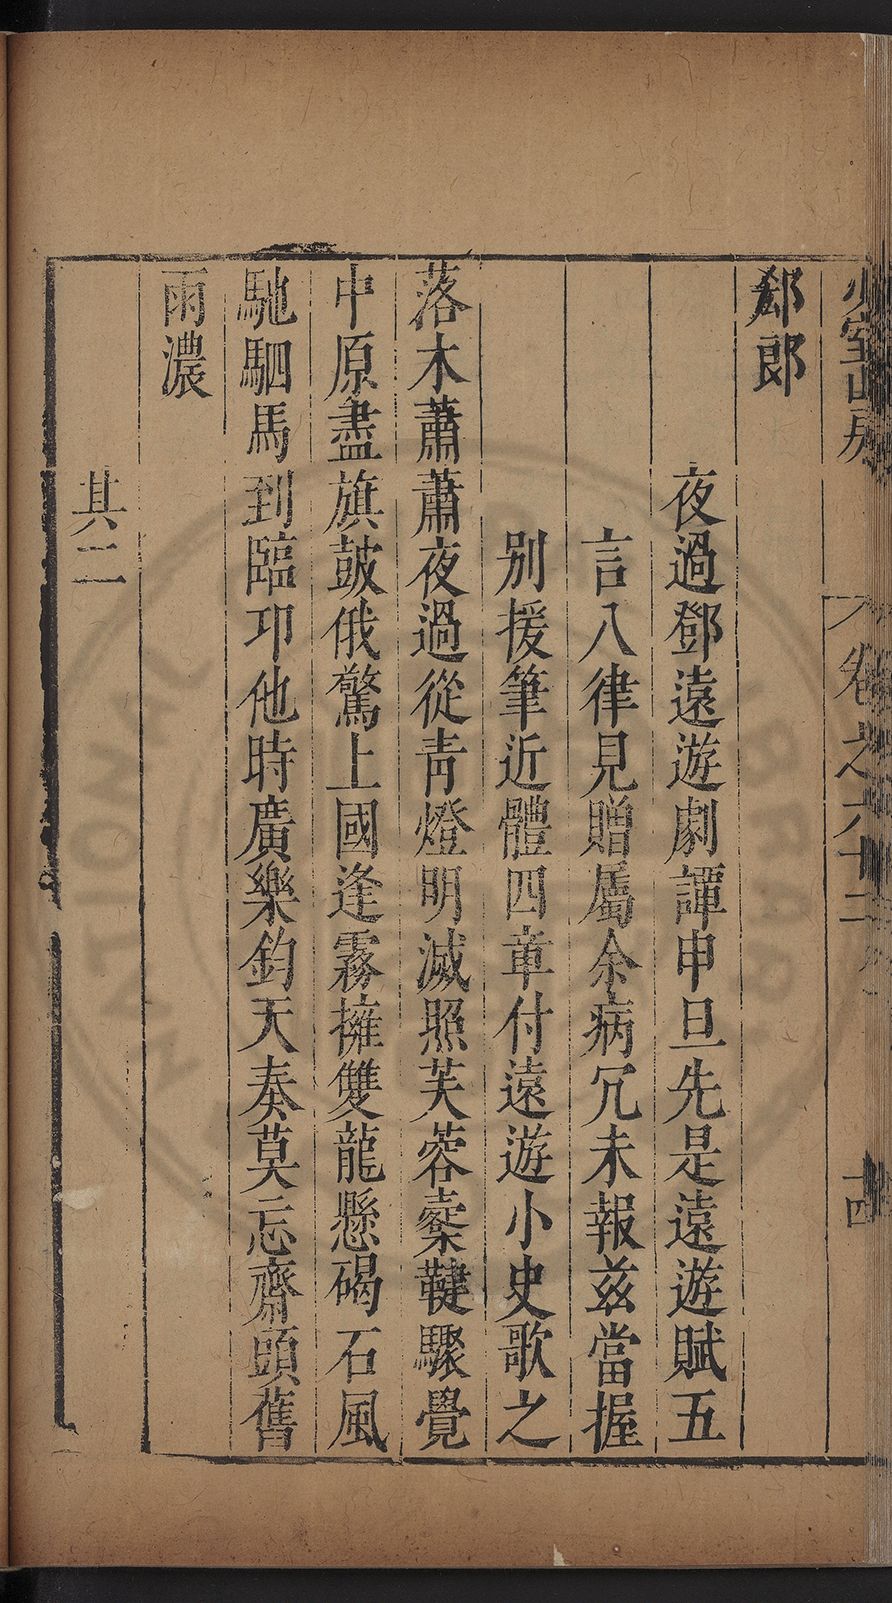 少室山房
卷之六十二
十四
䣌郎
夜過鄧遠遊劇譚申旦先是遠遊賦五
言八律見贈屬余病冗未報兹當握
別援筆近體四章付遠遊小史歌之
落木蕭蕭夜過從青燈明滅照芙蓉櫜鞬驟覺
中原盡旗鼓俄驚上國逢霧擁雙龍懸碣石風
馳駟馬到臨邛他時廣樂鈞天奏莫忘齋頭舊
雨濃
其二